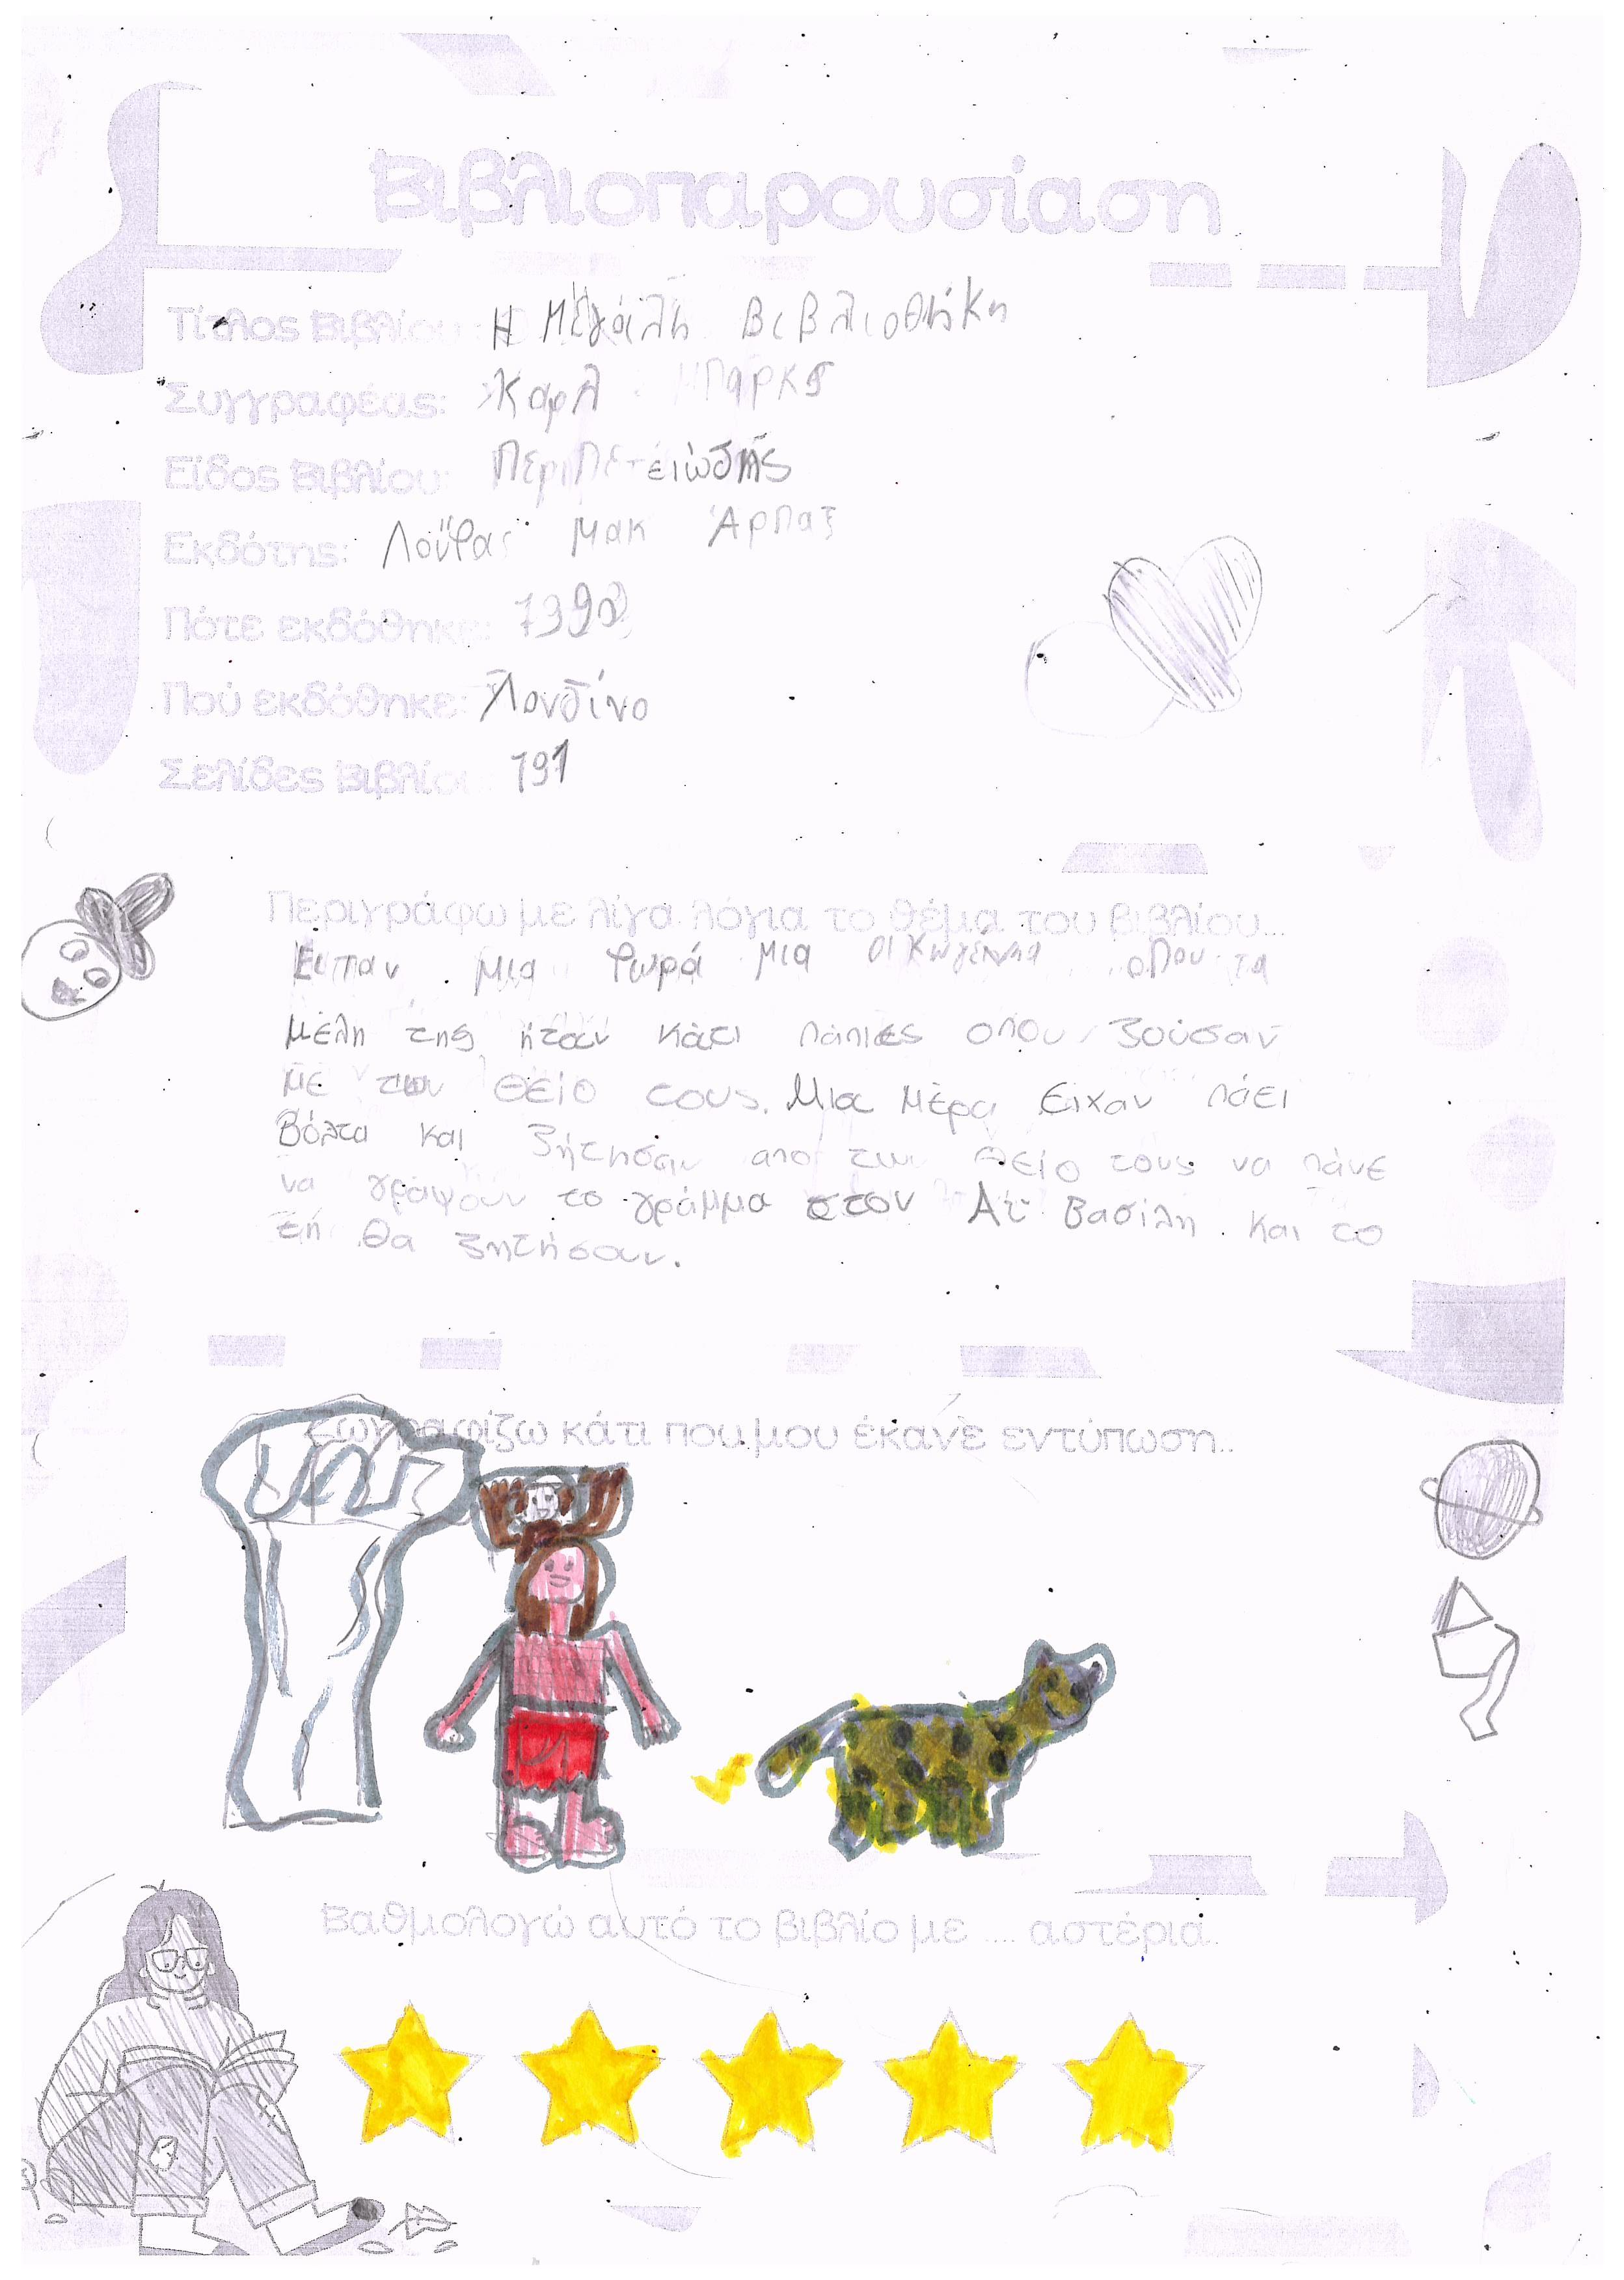 Βιβλιοπαρουσίαση
Τίτλος Βιβλίου: Η Μεγάλη Βιβλιοθήκη
Συγγραφέας: Καρλ Μπαρκς
Είδος Βιβλίου: Περιπετειώδης
Εκδότης: Μακ Άρπαξ
Πότε εκδόθηκε:
Πού εκδόθηκε: Λονδίνο
Σελίδες Βιβλίου: 191
Περιγράφω με λίγα λόγια το θέμα του βιβλίου...
μια φωρά μια οπου τα
μέλη της ήταν κάτι πάπιες οπου ζούσαν
με των θείο τους. Μια μέρα ειχαν πάει
Βόλτα και ζήτησαν απο των θείο τους να πάνε
να γράψουν το γράμμα στον Αϊ Βασίλη. και το
τή θα ζητήσουν.
Ζωγραφίζω κάτι που μου έκανε εντύπωση..
Βαθμολογώ αυτό το βιβλίο με .... αστέρια.